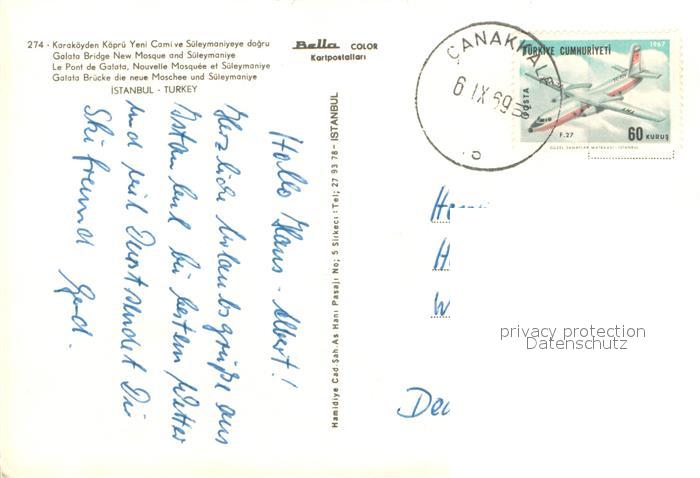 274 - Karaköyden Köprü Yeni Cami ve Süleymaniyeye doğru
Galata Bridge New Mosque and Süleymaniye
Le Pont de Galata, Nouvelle Mosquée et Süleymaniye
Galata Brücke die neue Moschee und Süleymaniye
İSTANBUL - TURKEY
Bella COLOR
Kartpostalları
Hallo Hans-Albert!
Herzliche Urlaubsgrüße aus
Istanbul bei bestem Wetter
und viel Durst sendet Dir
Skifreund Gerd.
Hamidiye Cad. Şah. As Hanı Pasajı No; 5 Sirkeci: Tel; 27 93 78 - İSTANBUL
ÇANAKKALE
6 IX 69
TÜRKİYE CUMHURİYETİ
1967
POSTA
F.27
60 KURUŞ
GÜZEL SANATLAR MATBAASI - İSTANBUL
privacy protection
Datenschutz